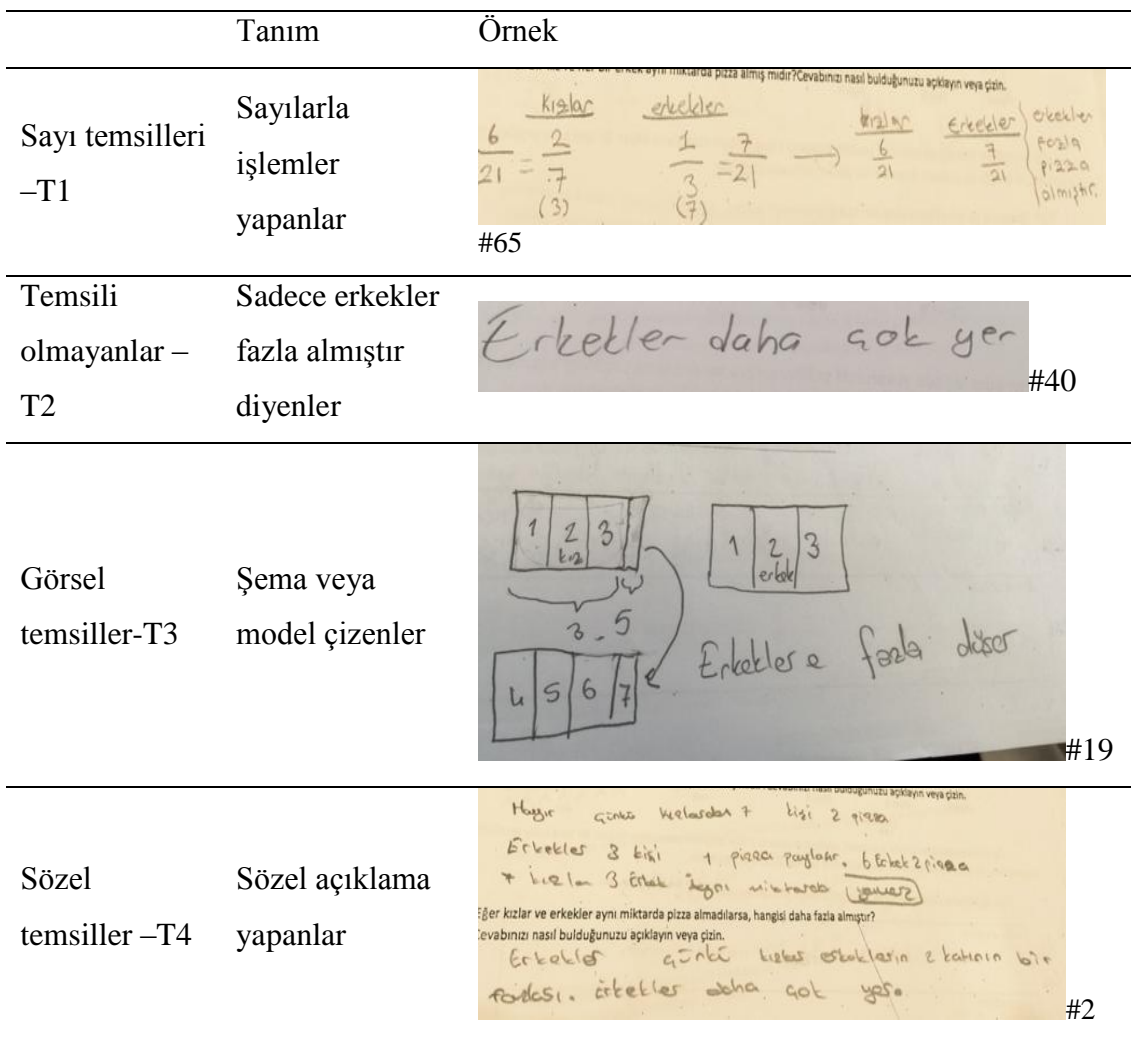 Tanım Örnek
Sayı temsilleri –T1
Sayılarla işlemler yapanlar
bir erkek aynı miktarda pizza almış mıdır?Cevabınızı nasıl bulduğunuzu açıklayın veya çizin.
Kızlar erkekler kızlar Erkekler
6/21 = 2/7 (3) 1/3 (7) = 7/21 → 6/21 7/21
erkekler
fazla
pizza
almıştır.
#65
Temsili olmayanlar – T2
Sadece erkekler fazla almıştır diyenler
Erkekler daha çok yer
#40
Görsel temsiller-T3
Şema veya model çizenler
1 2 3
kız
3.5
4 5 6 7
1 2 3
erkek
Erkeklere fazla düşer
#19
Sözel temsiller –T4
Sözel açıklama yapanlar
bulduğunuzu açıklayın veya çizin.
Hayır çünkü kızlardan 7 kişi 2 pizza
Erkekler 3 kişi 1 pizza paylaşır. 6 Erkek 2 pizza
7 kızlan 3 Erkek aynı miktarda yemez
Eğer kızlar ve erkekler aynı miktarda pizza almadılarsa, hangisi daha fazla almıştır?
Cevabınızı nasıl bulduğunuzu açıklayın veya çizin.
Erkekler çünkü kızlar erkeklerin 2 katının bir
fazlası. erkekler daha çok yer.
#2